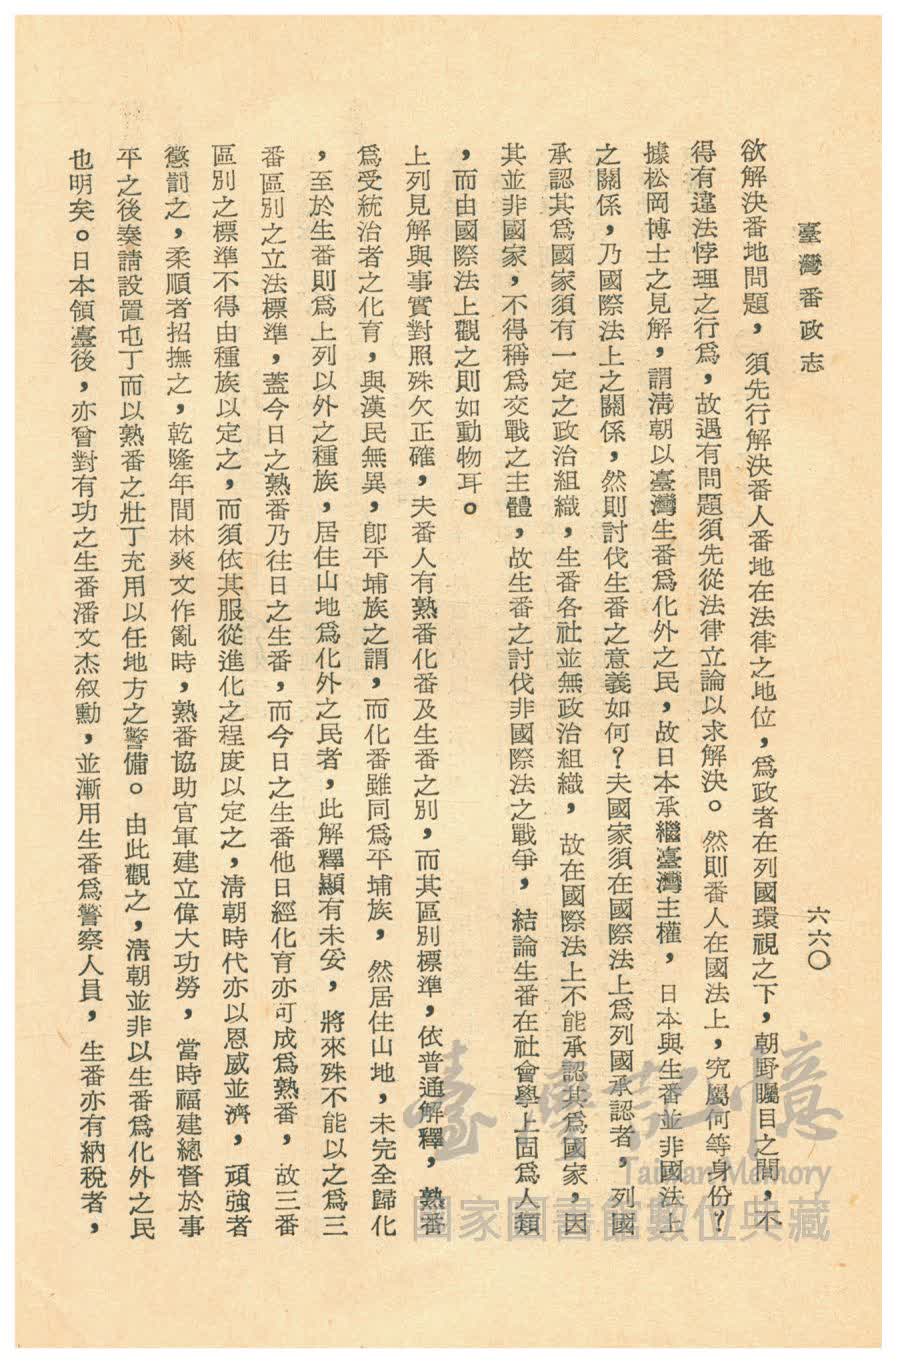 臺灣番政志
六六〇
欲解決番地問題，須先行解決番人番地在法律之地位，爲政者在列國環視之下，朝野矚目之間，不
得有違法悖理之行爲，故遇有問題須先從法律立論以求解決。然則番人在國法上，究屬何等身份？
據松岡博士之見解，謂淸朝以臺灣生番爲化外之民，故日本承繼臺灣主權，日本與生番並非國法上
之關係，乃國際法上之關係，然則討伐生番之意義如何？夫國家須在國際法上爲列國承認者，列國
承認其爲國家須有一定之政治組織，生番各社並無政治組織，故在國際法上不能承認其爲國家，因
其並非國家，不得稱爲交戰之主體，故生番之討伐非國際法之戰爭，結論生番在社會學上固爲人類
，而由國際法上觀之則如動物耳。
上列見解與事實對照殊欠正確，夫番人有熟番化番及生番之別，而其區別標準，依普通解釋，熟番
爲受統治者之化育，與漢民無異，卽平埔族之謂，而化番雖同爲平埔族，然居住山地，未完全歸化
，至於生番則爲上列以外之種族，居住山地爲化外之民者，此解釋顯有未妥，將來殊不能以之爲三
番區別之立法標準，蓋今日之熟番乃往日之生番，而今日之生番他日經化育亦可成爲熟番，故三番
區別之標準不得由種族以定之，而須依其服從進化之程度以定之，淸朝時代亦以恩威並濟，頑強者
懲罰之，柔順者招撫之，乾隆年間林爽文作亂時，熟番協助官軍建立偉大功勞，當時福建總督於事
平之後奏請設置屯丁而以熟番之壯丁充用以任地方之警備。由此觀之，淸朝並非以生番爲化外之民
也明矣。日本領臺後，亦曾對有功之生番潘文杰叙勳，並漸用生番爲警察人員，生番亦有納稅者，
臺灣記憶
Taiwan Memory
國家圖書館數位典藏